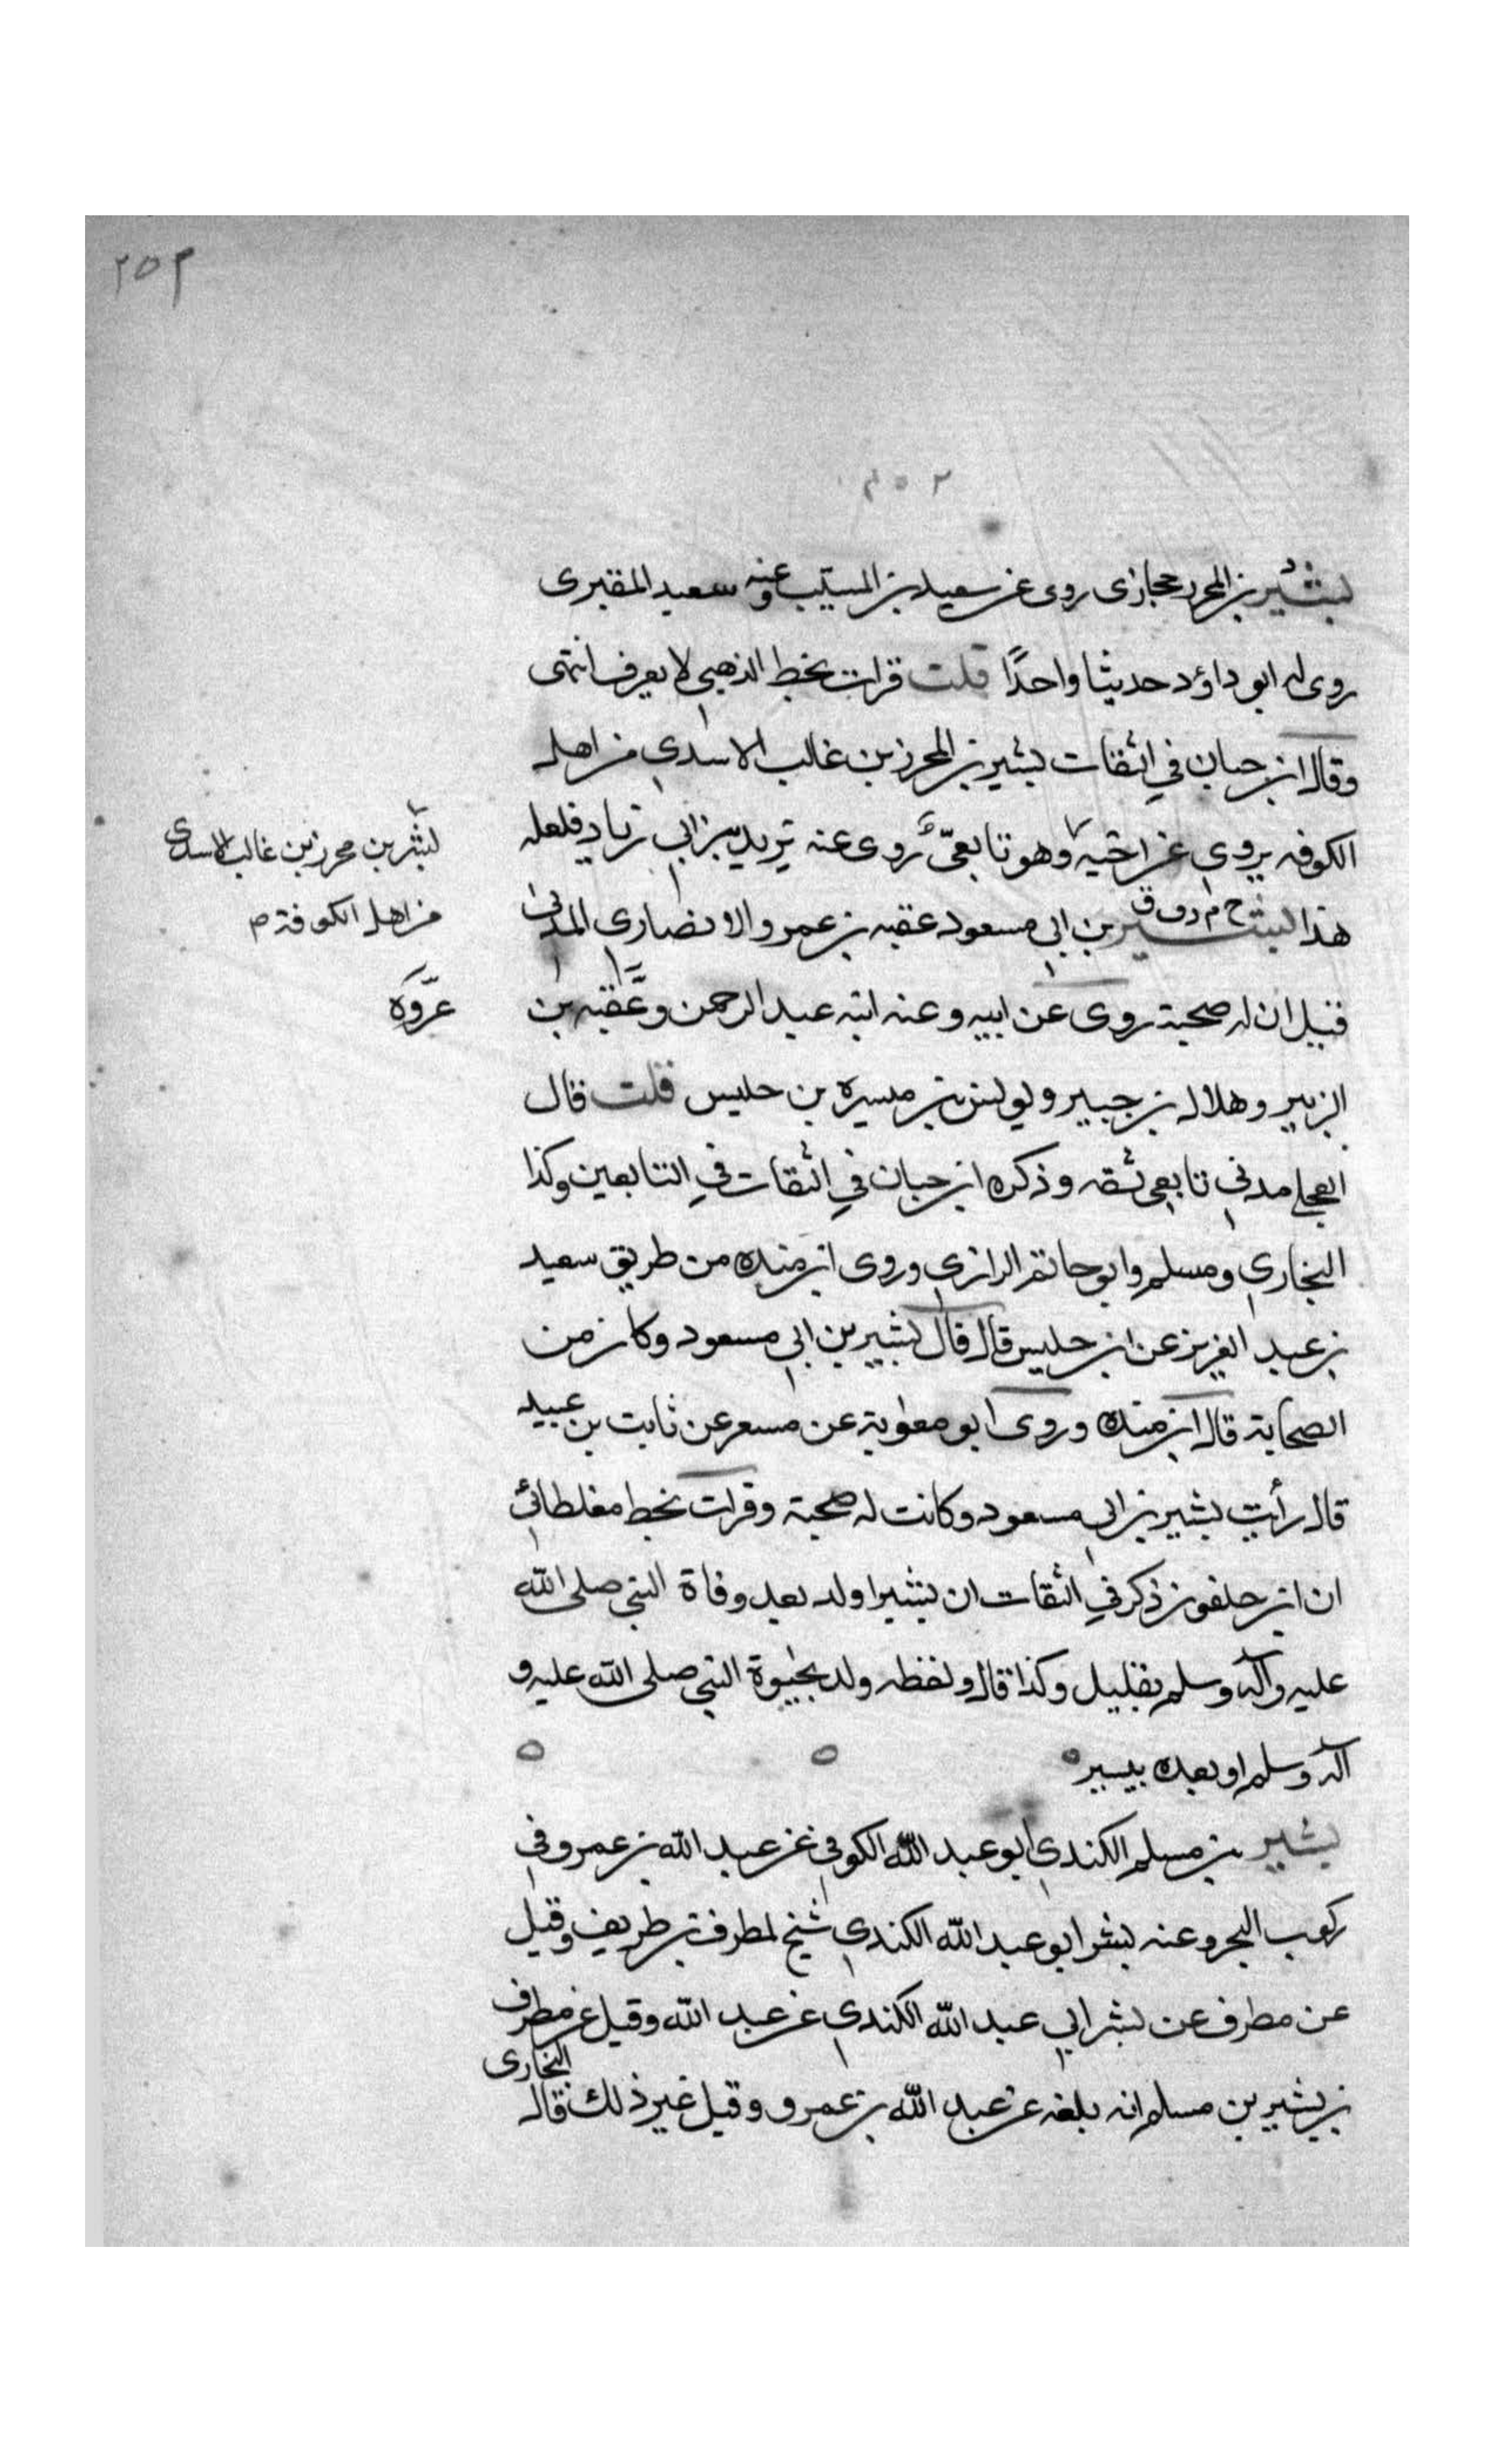 ٢٥٣
٢٥٣
بشير بن المحرر حجازى روى عن سعيد بن المسيب وعنه سعيد المقبرى
روى له ابو داؤد حديثا واحدًا قلت قرات بخط الذهبي لا يعرف انتهى
وقال ابن حبان في الثقات بشير بن المحرز بن غالب الاسدي من اهل
الكوفه يروي عن اخيه وهو تابعيّ روى عنه يزيد بن ابي زياد فلعله
بشر بن محرز بن غالب الاسدي
من اهل الكوفة م
هذا بشير بن ابي مسعود عقبه بن عمرو الانصارى المدني
خ م د ق
قيل ان له صحبة روى عن ابيه وعنه ابنه عبد الرحمن وعقبه بن
عروة
الزبير وهلال بن جبير ويونس بن ميسرة بن حلبس قلت قال
العجلي مدني تابعي ثقه وذكره ابن حبان في الثقات في التابعين وكذا
البخاري ومسلم وابو حاتم الرازي وروى ابن منده من طريق سعيد
بن عبد العزيز عن ابن حلبس قال قال بشير بن ابي مسعود وكان من
الصحابة قال ابن منده وروى ابو معوية عن مسعر عن ثابت بن عبيد
قال رأيت بشير بن ابي مسعود وكانت له صحبة وقرات بخط مغلطائي
ان ابن خلفون ذكر في الثقات ان بشيرا ولد بعد وفاة النبي صلى الله
عليه وآله وسلم بقليل وكذا قال ولفظه ولد بحيوة النبي صلى الله عليه و
آله وسلم او بعده بيسير
بشير بن مسلم الكندي ابو عبد الله الكوفي عن عبد الله بن عمرو في
ركوب البحر وعنه بشر ابو عبد الله الكندي شيخ لمطرف بن طريف وقيل
عن مطرف عن بشر ابي عبد الله الكندي عن عبد الله وقيل عن مطرف
بن بشير بن مسلم انه بلغه عن عبد الله بن عمرو وقيل غير ذلك قال البخارى